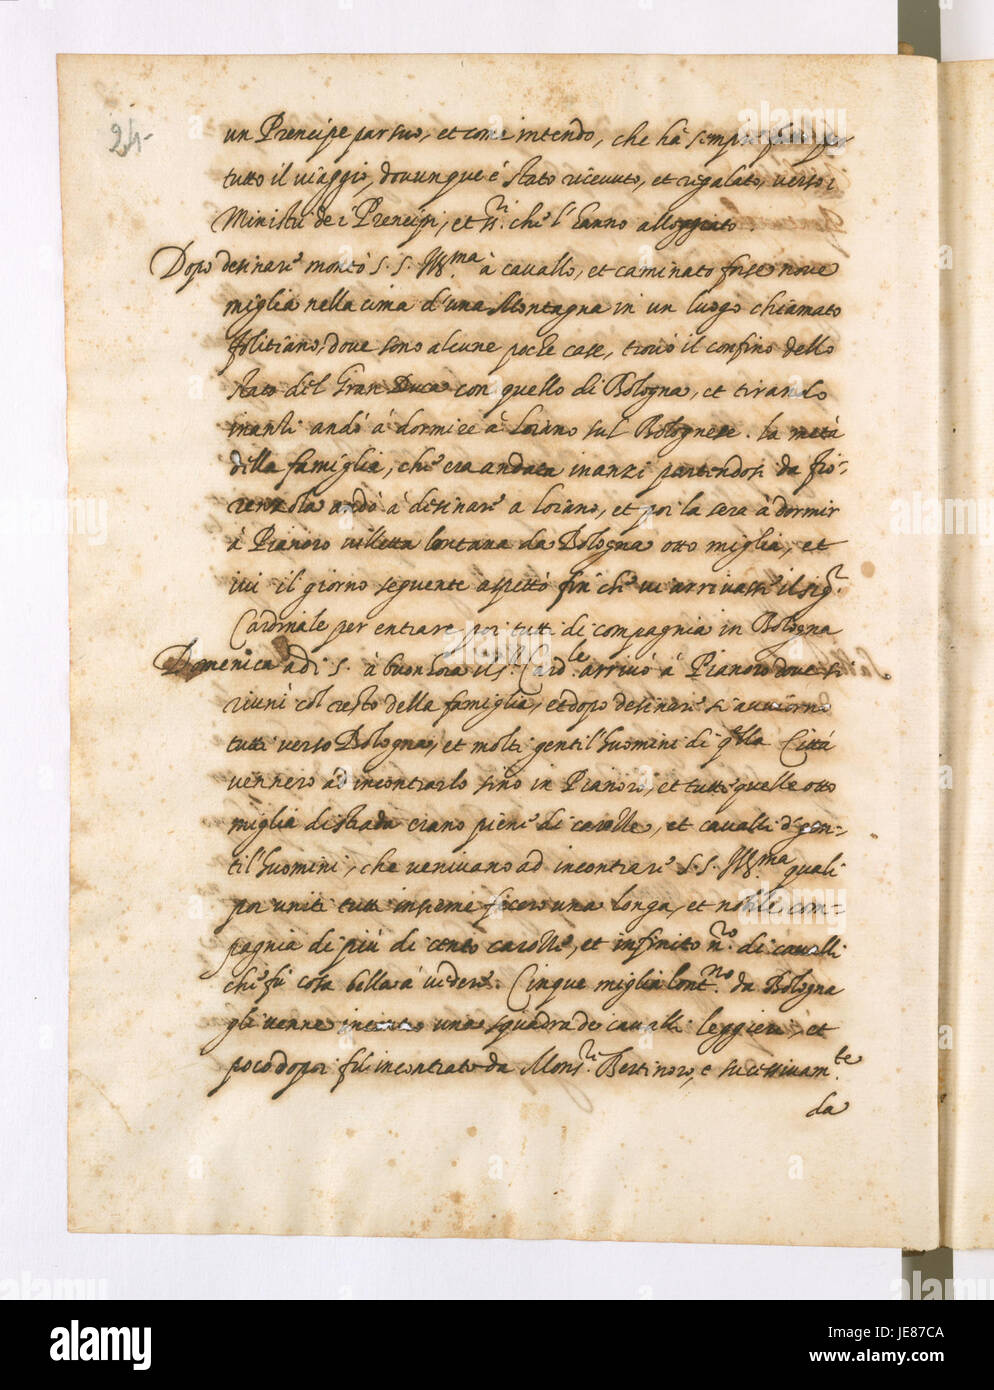 24
un Prencipe par suo, et come intendo, che hà sempre fatto per
tutto il viaggio, dovunque è stato ricevuto, et regalato, verso i
Ministri de i Prencipi, et ss.ri che l'hanno alloggiato.
Dopo desinare montò S. S. Ill.ma à cavallo, et caminato forse nove
miglia nella cima d'una Montagna in un luogo chiamato
dove sono alcune poche case, trovò il confino dello
stato del Gran Duca con quello di Bologna, et tirando
inanti andò à dormire à Loiano sul Bolognese. la metà
della famiglia, che era andata inanzi partendosi da Fio-
renzola andò à desinare a Loiano, et poi la sera à dormir
à Pianoro villetta lontana da Bologna otto miglia, et
ivi il giorno seguente aspettò fin che vi arrivasse il sig.r
Cardinale per entrare poi tutti di compagnia in Bologna
Domenica adi 5. à buon hora il s.r Card.le arrivò à Pianoro dove si
riunì col resto della famiglia, et dopo desinare si avviorno
tutti verso Bologna, et molti gentil'huomini di q.lla Città
vennero ad incontrarlo sino in Pianoro, et tutte quelle otto
miglia di strada erano piene di carozze, et cavalli d gen-
til'huomini, che venivano ad incontrare S. S. Ill.ma quali
poi uniti tutti insieme fecero una longa, et nobile com-
pagnia di più di cento carozze, et infinito n.ro di cavalli
che fù cosa bella à vedere. Cinque miglia lont.no da Bologna
gli venne incontro una squadra de cavalli leggieri, et
poco dopoi fù incontrato da Mons.r Bertinoro, e successivam.te
da
alamy
JE87CA
www.alamy.com